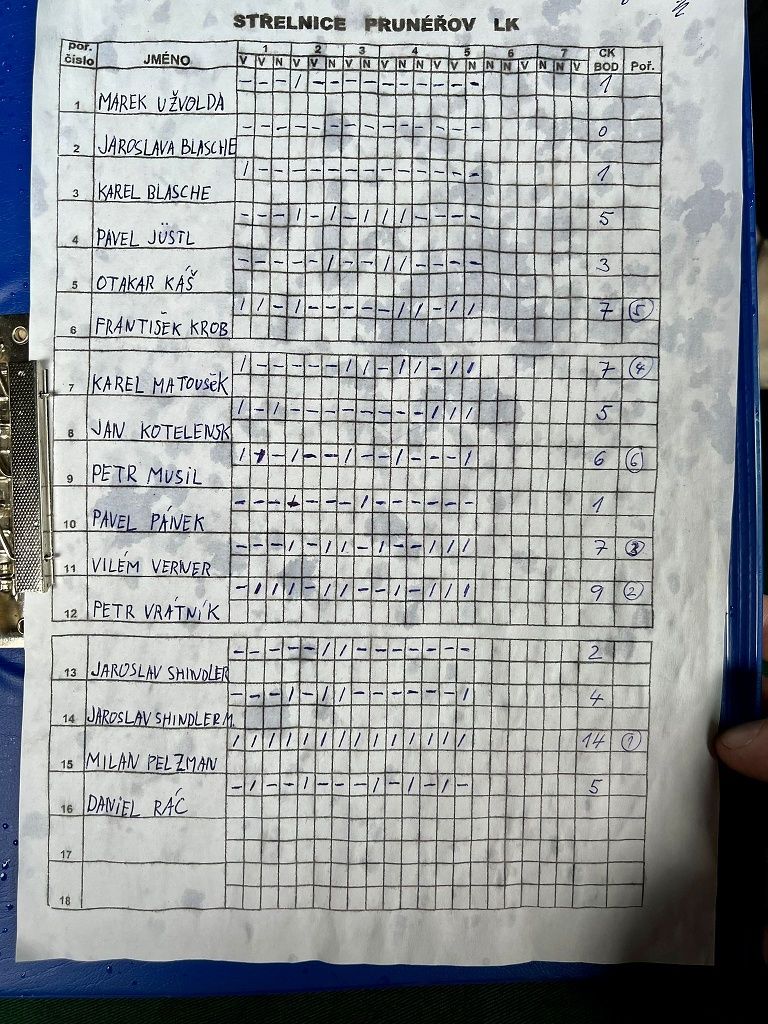 STŘELNICE PRUNÉŘOV LK
poř. číslo JMÉNO 1 2 3 4 5 6 7 CK BOD Poř.
V V N V V N V N V N N V V N N N V N N V
1 MAREK UŽVOLDA - - - / - - - - - - - - - - 1
2 JAROSLAVA BLASCHE - - - - - - - - - - - - - - 0
3 KAREL BLASCHE / - - - - - - - - - - - - - 1
4 PAVEL JÜSTL - - - / - / - / / / - - - - 5
5 OTAKAR KÁŠ - - - - - / - - / / - - - - 3
6 FRANTIŠEK KROB / / - / - - - - - / / - / / 7 5
7 KAREL MATOUŠEK / - - - - - / / - / / - / / 7 4
8 JAN KOTELENSK / - / - - - - - - - - / / / 5
9 PETR MUSIL / / - / - - / - - / - - - / 6 6
10 PAVEL PÁNEK - - - - - - - / - - - - - - 1
11 VILÉM VERNER - - - / - / / - / - - / / / 7 3
12 PETR VRÁTNÍK - / / / / - / / - - / - / / 9 2
13 JAROSLAV SHINDLER - - - - - / / - - - - - - - 2
14 JAROSLAV SHINDLER M. - - - / - / / - - - - - - / 4
15 MILAN PELZMAN / / / / / / / / / / / / / / 14 1
16 DANIEL RÁC - / - - / - - - / - / - / - 5
17
18